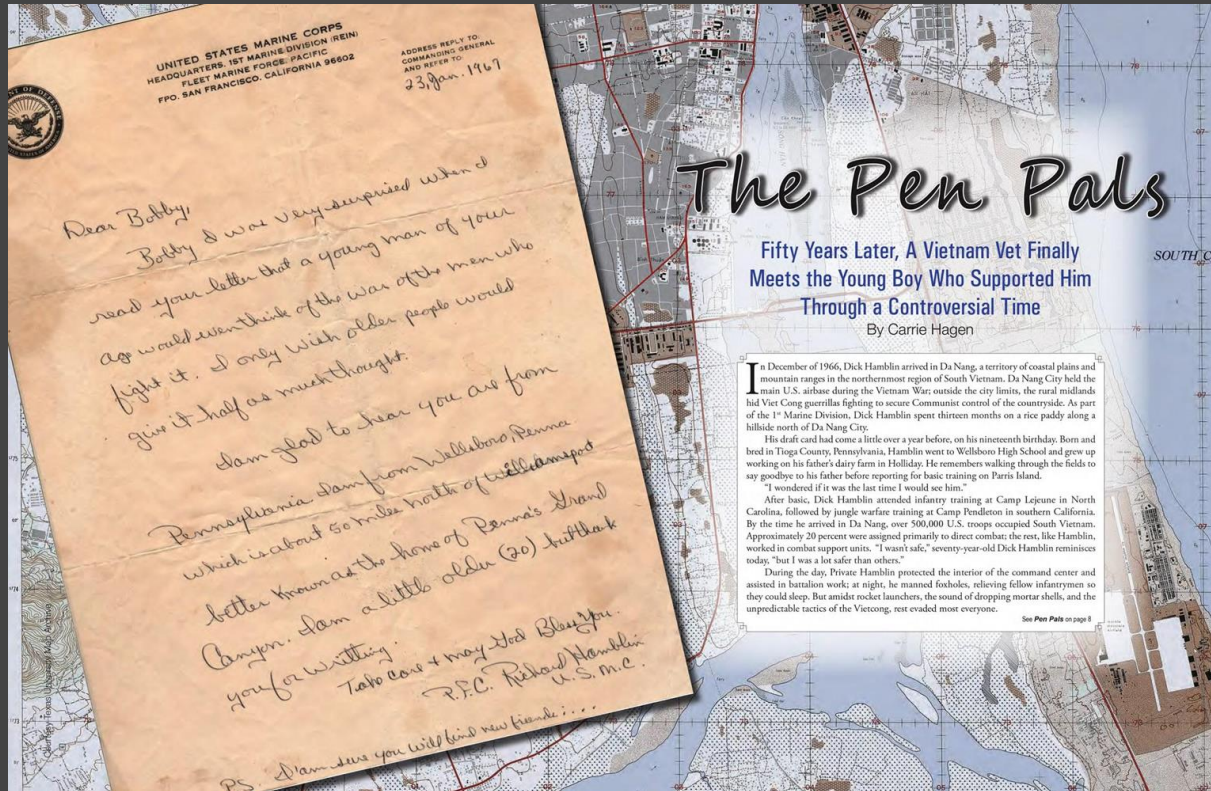 UNITED STATES MARINE CORPS
HEADQUARTERS, 1ST MARINE DIVISION (REIN)
FLEET MARINE FORCE, PACIFIC
FPO, SAN FRANCISCO, CALIFORNIA 96602
ADDRESS REPLY TO:
COMMANDING GENERAL
AND REFER TO:
23, Jan. 1967
Dear Bobby,
Bobby I was very surprised when I
read your letter that a young man of your
age would even think of the war of the men who
fight it. I only wish older people would
give it half as much thought.
I am glad to hear you are from
Pennsylvania I am from Wellsboro, Penna
which is about 50 miles north of Williamsport
better known as the home of Penna's Grand
Canyon. I am a little older (20) but thank
you for writting.
Take care + may God Bless You.
P.F.C. Richard Hamblin
U.S.M.C.
PS. I'am sure you will find new friends....
The Pen Pals
Fifty Years Later, A Vietnam Vet Finally
Meets the Young Boy Who Supported Him
Through a Controversial Time
By Carrie Hagen
SOUTH C
In December of 1966, Dick Hamblin arrived in Da Nang, a territory of coastal plains and
mountain ranges in the northernmost region of South Vietnam. Da Nang City held the
main U.S. airbase during the Vietnam War; outside the city limits, the rural midlands
hid Viet Cong guerrillas fighting to secure Communist control of the countryside. As part
of the 1st Marine Division, Dick Hamblin spent thirteen months on a rice paddy along a
hillside north of Da Nang City.
His draft card had come a little over a year before, on his nineteenth birthday. Born and
bred in Tioga County, Pennsylvania, Hamblin went to Wellsboro High School and grew up
working on his father's dairy farm in Holliday. He remembers walking through the fields to
say goodbye to his father before reporting for basic training on Parris Island.
"I wondered if it was the last time I would see him."
After basic, Dick Hamblin attended infantry training at Camp Lejeune in North
Carolina, followed by jungle warfare training at Camp Pendleton in southern California.
By the time he arrived in Da Nang, over 500,000 U.S. troops occupied South Vietnam.
Approximately 20 percent were assigned primarily to direct combat; the rest, like Hamblin,
worked in combat support units. "I wasn't safe," seventy-year-old Dick Hamblin reminisces
today, "but I was a lot safer than others."
During the day, Private Hamblin protected the interior of the command center and
assisted in battalion work; at night, he manned foxholes, relieving fellow infantrymen so
they could sleep. But amidst rocket launchers, the sound of dropping mortar shells, and the
unpredictable tactics of the Vietcong, rest evaded most everyone.
See Pen Pals on page 8